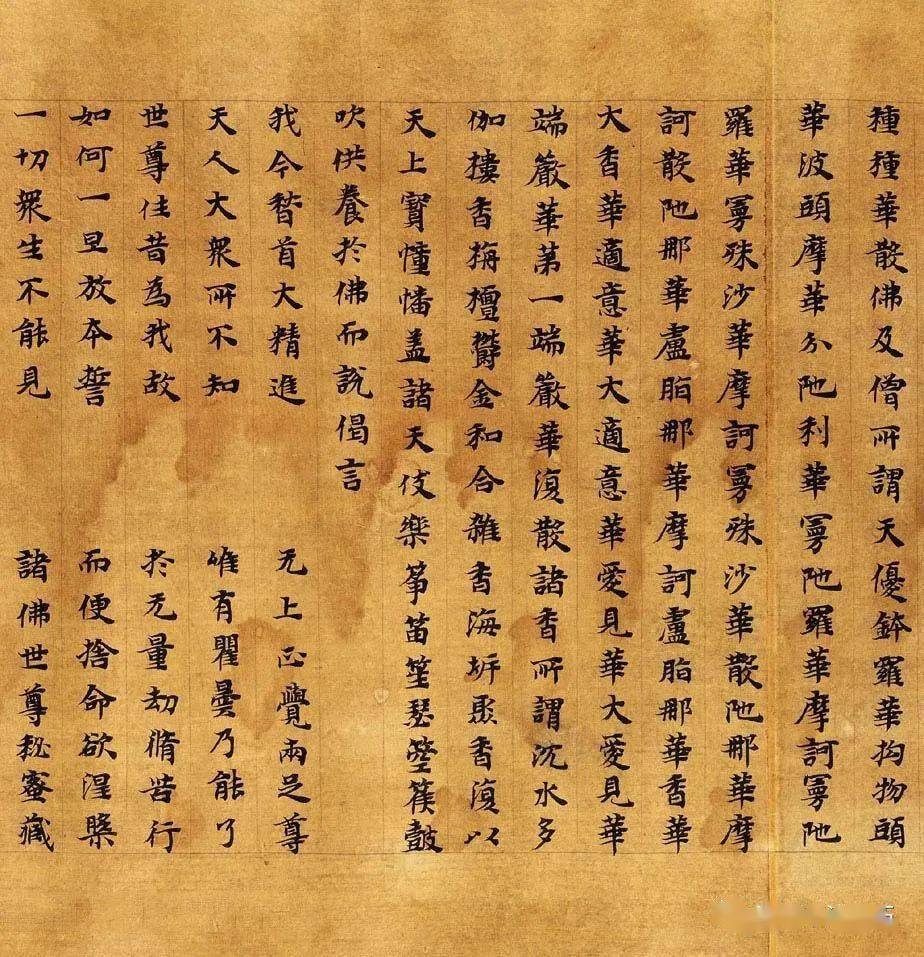 種種華散佛及僧所謂天優鉢羅華拘物頭
華波頭摩華分陁利華㝧陁羅華摩訶㝧陁
羅華㝧殊沙華摩訶㝧殊沙華散陁那華摩
訶散陁那華盧脂那華摩訶盧脂那華香華
大香華適意華大適意華愛見華大愛見華
端嚴華第一端嚴華復散諸香所謂沉水多
伽摟香栴檀欝金和合雜香海圻聚香復以
天上寶幢幡盖諸天伎樂筝笛笙瑟箜篌皷
吹供養扵佛而說偈言
我今稽首大精進　无上正覺兩足尊
天人大衆所不知　唯有瞿曇乃能了
世尊往昔為我故　扵无量劫脩苦行
如何一旦放本誓　而便捨命欲涅槃
一切衆生不能見　諸佛世尊秘蜜藏